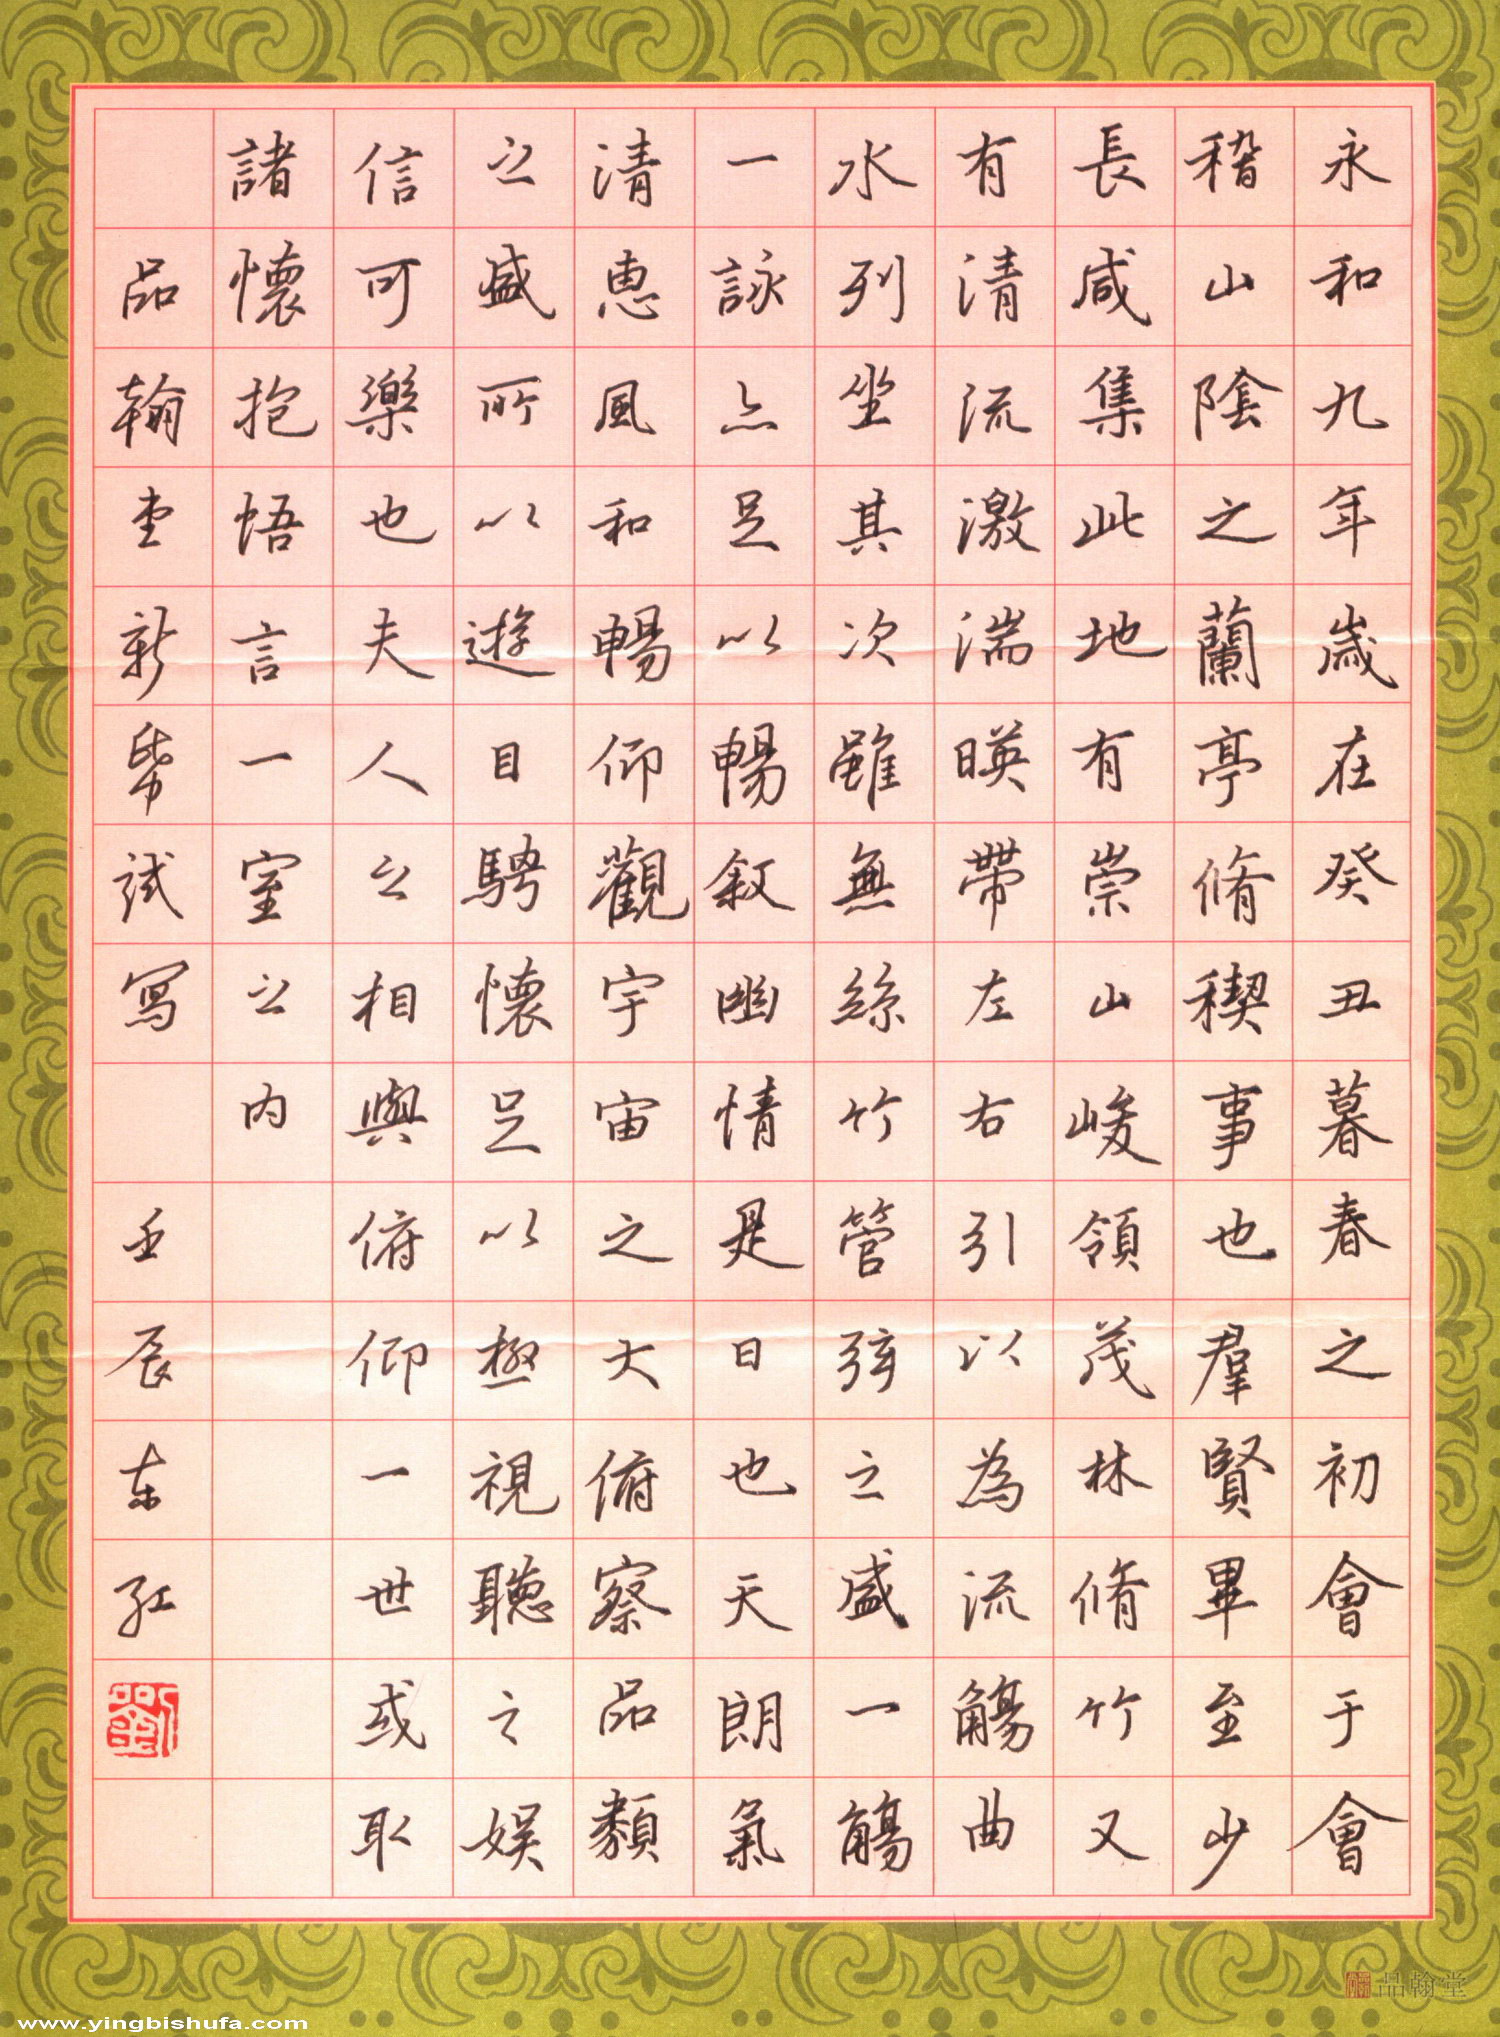 永和九年歲在癸丑暮春之初會于會
稽山陰之蘭亭脩稧事也羣賢畢至少
長咸集此地有崇山峻領茂林脩竹又
有清流激湍暎帶左右引以為流觴曲
水列坐其次雖無絲竹管弦之盛一觴
一詠亦足以暢敘幽情是日也天朗氣
清惠風和暢仰觀宇宙之大俯察品類
之盛所以遊目騁懷足以極視聽之娛
信可樂也夫人之相與俯仰一世或取
諸懷抱悟言一室之內
品翰堂新紙試寫 壬辰東紅
劉
品翰堂
www.yingbishufa.com